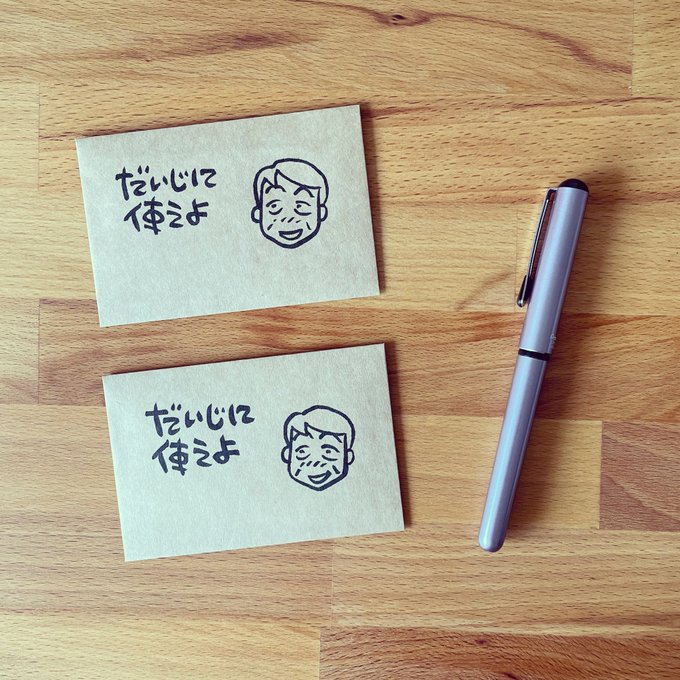 だいじに
使えよ
だいじに
使えよ